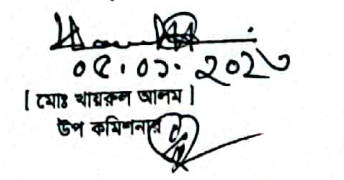 ০৫.০১.২০২৩
[ মোঃ খায়রুল আলম ]
উপ কমিশনার